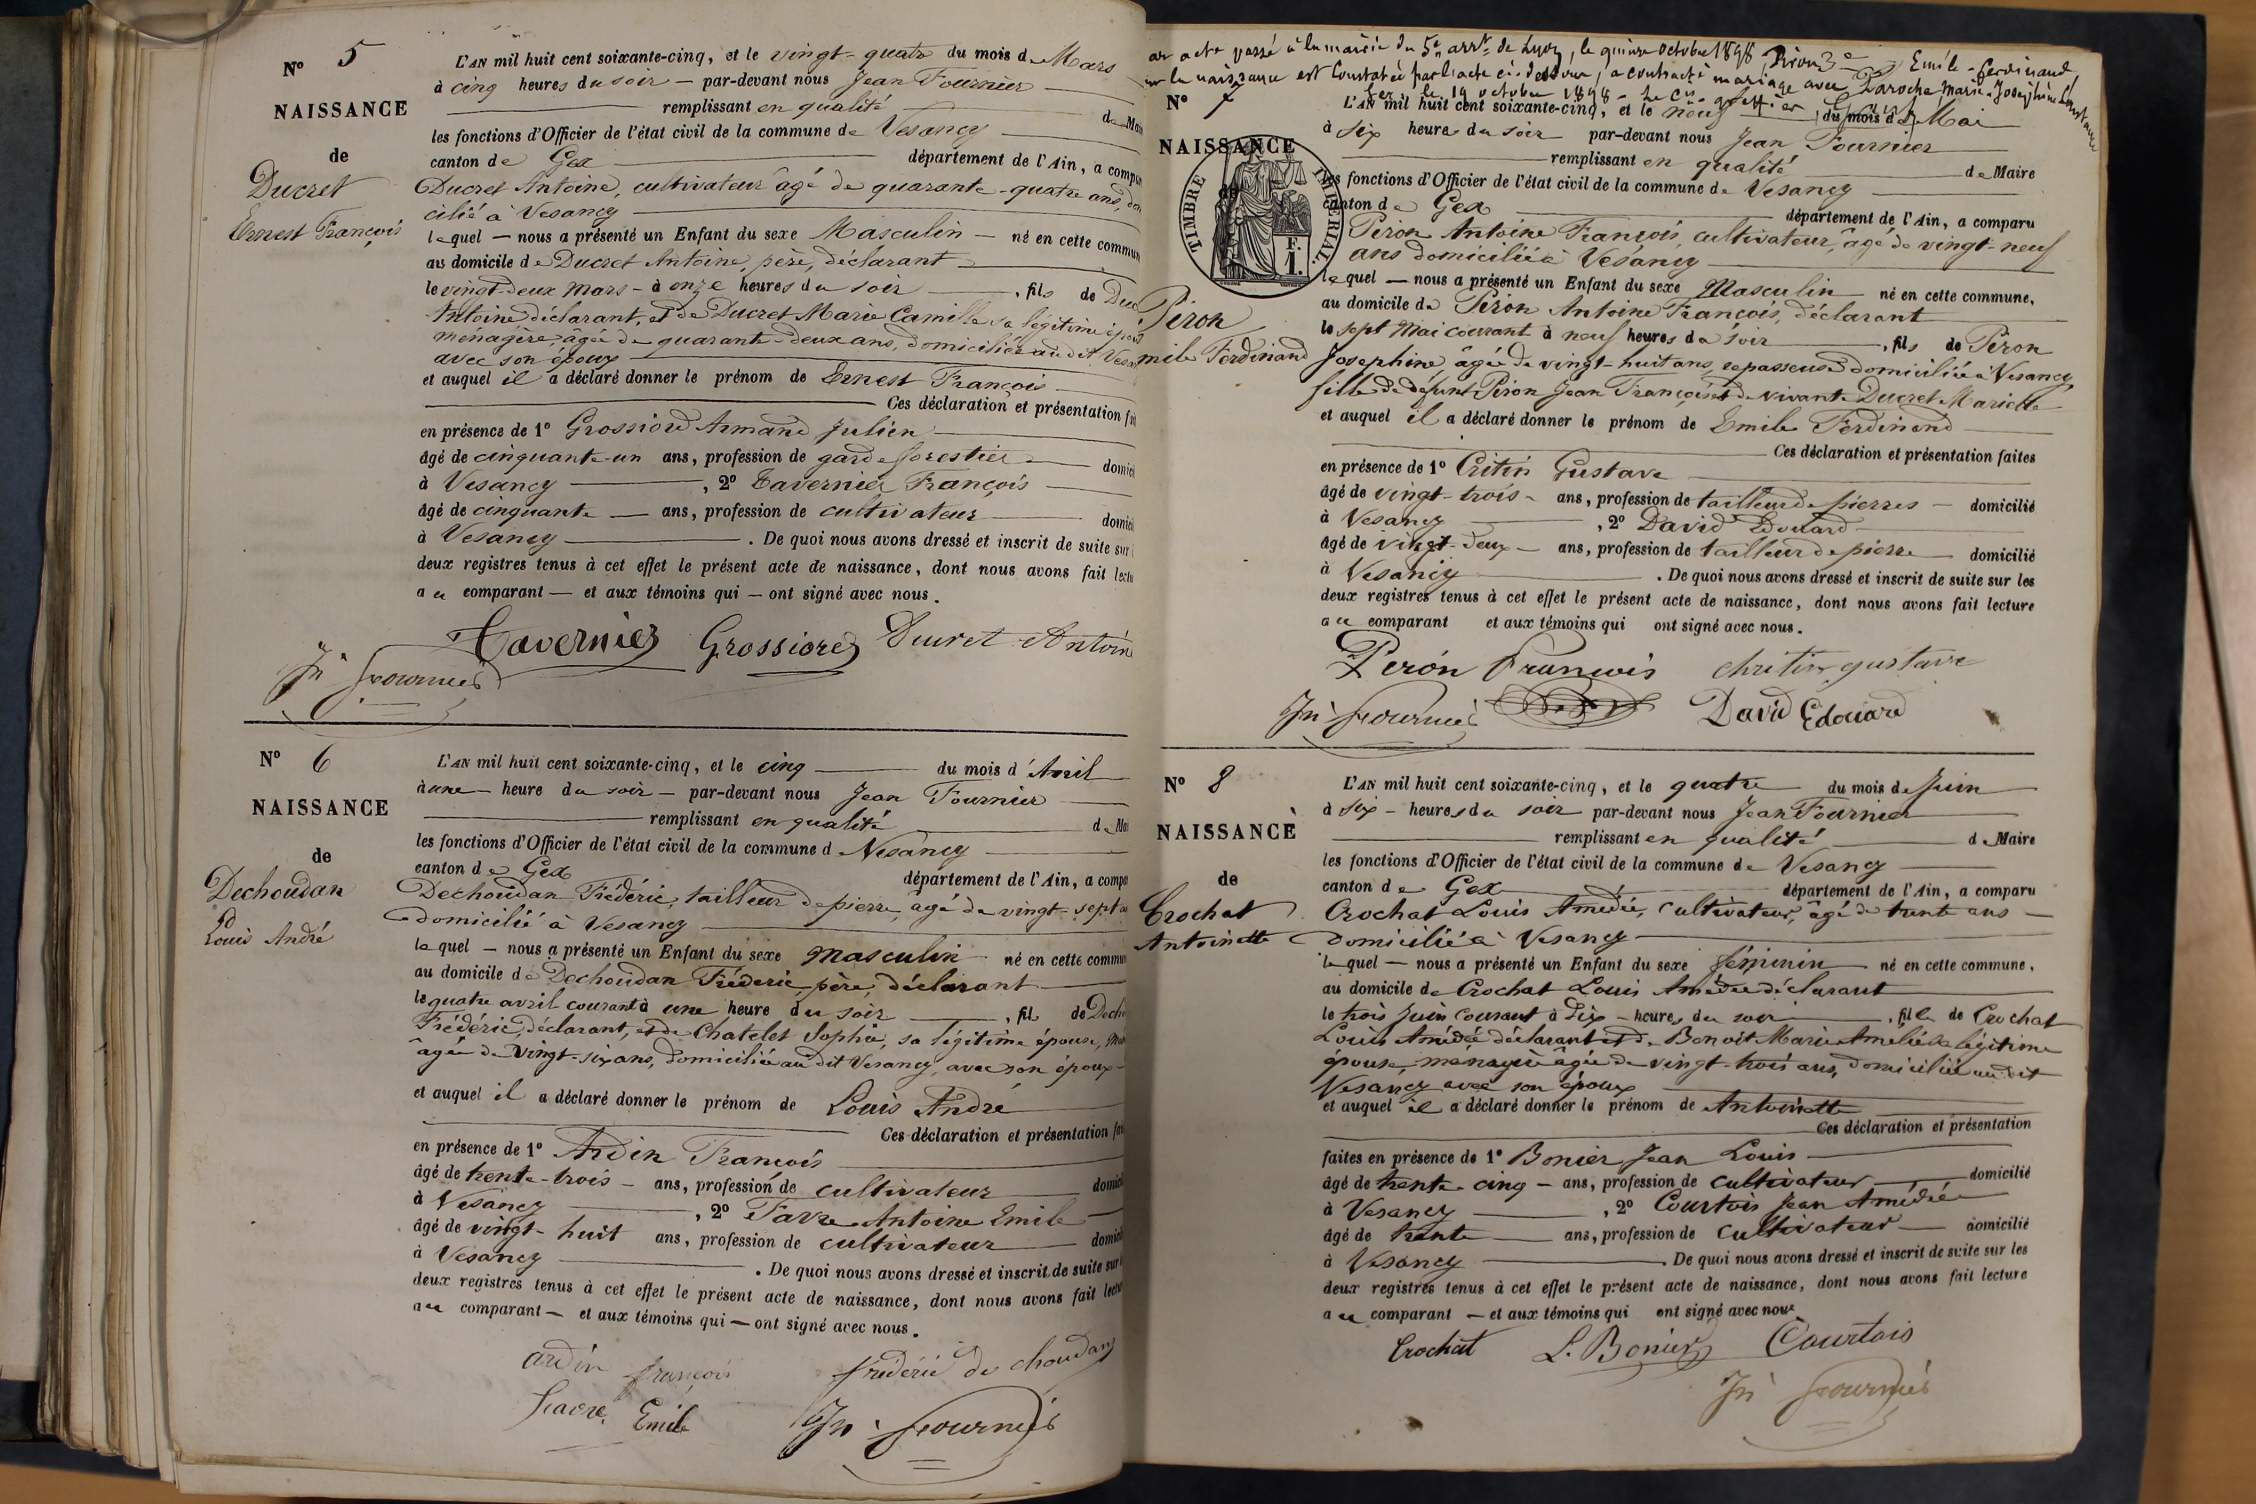 Nº 5
NAISSANCE
de
Ducret
Ernest François
L'AN mil huit cent soixante-cinq, et le vingt-quatre du mois de Mars
à cinq heures du soir — par-devant nous Jean Fournier
remplissant en qualité de Mai
les fonctions d'Officier de l'état civil de la commune de Vesancy
canton de Gex département de l'Ain, a compa
Ducret Antoine, cultivateur âgé de quarante-quatre ans, do
cilié à Vesancy
lequel — nous a présenté un Enfant du sexe Masculin — né en cette commun
au domicile de Ducret Antoine, père, déclarant
le vingt-deux Mars — à onze heures du soir , fils de Duc
Antoine, déclarant, et de Ducret Marie Camille sa légitime épou
ménagère, âgée de quarante-deux ans, domiciliée au dit Vesan
avec son époux
et auquel il a déclaré donner le prénom de Ernest François
Ces déclaration et présentation fai
en présence de 1º Grossiord Armand Julien
âgé de cinquante-un ans, profession de garde forestier domici
à Vesancy , 2º Tavernier François
âgé de cinquante — ans, profession de cultivateur domici
à Vesancy . De quoi nous avons dressé et inscrit de suite sur
deux registres tenus à cet effet le présent acte de naissance, dont nous avons fait lectu
au comparant — et aux témoins qui — ont signé avec nous.
Tavernier Grossiord Ducret Antoin
Jn Fournier
Nº 6
NAISSANCE
de
Dechoudan
Louis André
L'AN mil huit cent soixante-cinq, et le cinq du mois d'Avril
à une — heure du soir — par-devant nous Jean Fournier
remplissant en qualité de Mai
les fonctions d'Officier de l'état civil de la commune d Vesancy
canton de Gex département de l'Ain, a compa
Dechoudan Frédéric, tailleur de pierre, âgé de vingt-sept a
domicilié à Vesancy
lequel — nous a présenté un Enfant du sexe Masculin né en cette commun
au domicile de Dechoudan Fréderic, père, déclarant
le quatre avril courant à une heure du soir , fils de Decho
Frédéric, déclarant, et de Chatelet Sophie, sa légitime épouse,
âgée de vingt-six ans, domiciliée au dit Vesancy, avec son époux —
et auquel il a déclaré donner le prénom de Louis André
Ces déclaration et présentation fai
en présence de 1º Ardin François
âgé de trente-trois — ans, profession de cultivateur domici
à Vesancy , 2º Favre Antoine Emile
âgé de vingt-huit ans, profession de cultivateur domici
à Vesancy . De quoi nous avons dressé et inscrit de suite sur
deux registres tenus à cet effet le présent acte de naissance, dont nous avons fait lectu
au comparant — et aux témoins qui — ont signé avec nous.
ardin françois frédéric de choudan
favre Emile Jn Fournier
ar acte passé à la mairie du 5e arrt de Lyon, le quinze octobre 1898, Piron Emile-Ferdinand,
la naissance est constatée par l'acte ci-dessous, a contracté mariage avec Laroche Marie-Josephine Constance
Gex, le 19 octobre 1898 - Le Cis greffier
Nº 7
NAISSANCE
de
TIMBRE IMPÉRIAL
F.
1.
Piron
mile Ferdinand
L'AN mil huit cent soixante-cinq, et le neuf du mois de Mai
à six heures du soir par-devant nous Jean Fournier
remplissant en qualité de Maire
les fonctions d'Officier de l'état civil de la commune de Vesancy
canton de Gex département de l'Ain, a comparu
Piron Antoine François, cultivateur, âgé de vingt-neuf
ans domicilié à Vesancy
lequel — nous a présenté un Enfant du sexe Masculin né en cette commune,
au domicile de Piron Antoine François, déclarant
le sept Mai courant à neuf heures du soir , fils de Piron
Josephine âgée de vingt-huit ans, repasseuse domiciliée à Vesancy,
fille de défunt Piron Jean François et de vivante Ducret Mariette
et auquel il a déclaré donner le prénom de Emile Ferdinand
Ces déclaration et présentation faites
en présence de 1º Critin Gustave
âgé de vingt-trois — ans, profession de tailleur de pierres — domicilié
à Vesancy , 2º David Edouard
âgé de vingt-deux — ans, profession de tailleur de pierre domicilié
à Vesancy . De quoi nous avons dressé et inscrit de suite sur les
deux registres tenus à cet effet le présent acte de naissance, dont nous avons fait lecture
au comparant et aux témoins qui ont signé avec nous.
Perón François chritin gustave
Jn Fournier David Edouard
Nº 8
NAISSANCE
de
Crochat
Antoinette
L'AN mil huit cent soixante-cinq, et le quatre du mois de Juin
à six — heures du soir par-devant nous Jean Fournier
remplissant en qualité de Maire
les fonctions d'Officier de l'état civil de la commune de Vesancy
canton de Gex département de l'Ain, a comparu
Crochat Louis Amédée, cultivateur, âgé de trente ans —
domicilié à Vesancy
lequel — nous a présenté un Enfant du sexe féminin né en cette commune,
au domicile de Crochat Louis Amédée déclarant
le trois Juin courant à dix — heures du soir , fille de Crochat
Louis Amédée déclarant et de Benoit Marie Amélie sa légitime
épouse, ménagère âgée de vingt-trois ans, domiciliée au dit
Vesancy avec son époux
et auquel il a déclaré donner le prénom de Antoinette
Ces déclaration et présentation
faites en présence de 1º Bonier Jean Louis
âgé de trente cinq — ans, profession de cultivateur domicilié
à Vesancy , 2º Courtois Jean Amédée
âgé de trente ans, profession de cultivateur — domicilié
à Vesancy . De quoi nous avons dressé et inscrit de suite sur les
deux registres tenus à cet effet le présent acte de naissance, dont nous avons fait lecture
au comparant — et aux témoins qui ont signé avec nous
Crochat L. Bonier Courtois
Jn Fournier